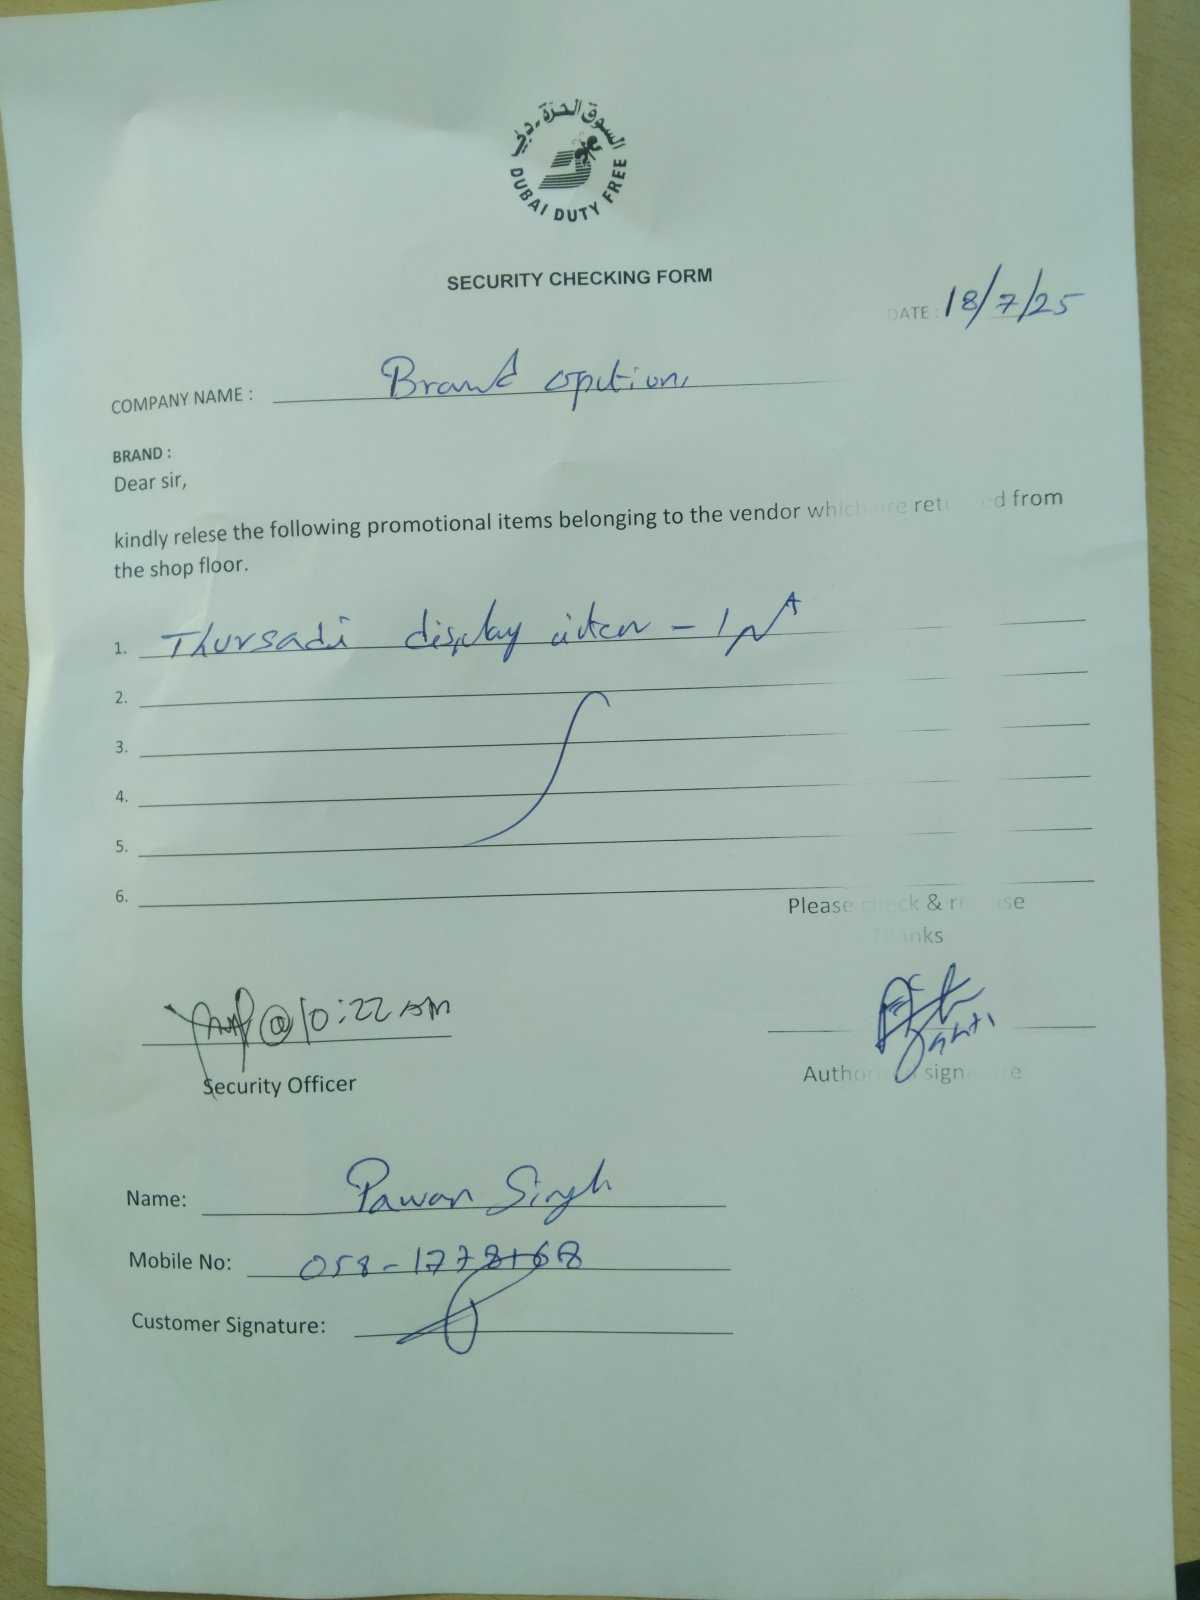 السوق الحرة - دبي
DUBAI DUTY FREE
SECURITY CHECKING FORM
DATE : 18/7/25
COMPANY NAME : Brand opution
BRAND :
Dear sir,
kindly relese the following promotional items belonging to the vendor which are returned from
the shop floor.
1. Thursadi display - 1
2.
3.
4.
5.
6.
Please check & release
Thanks
@ 10:22 AM
Security Officer
Authorised signature
Name: Pawan Singh
Mobile No: 058-1778768
Customer Signature: